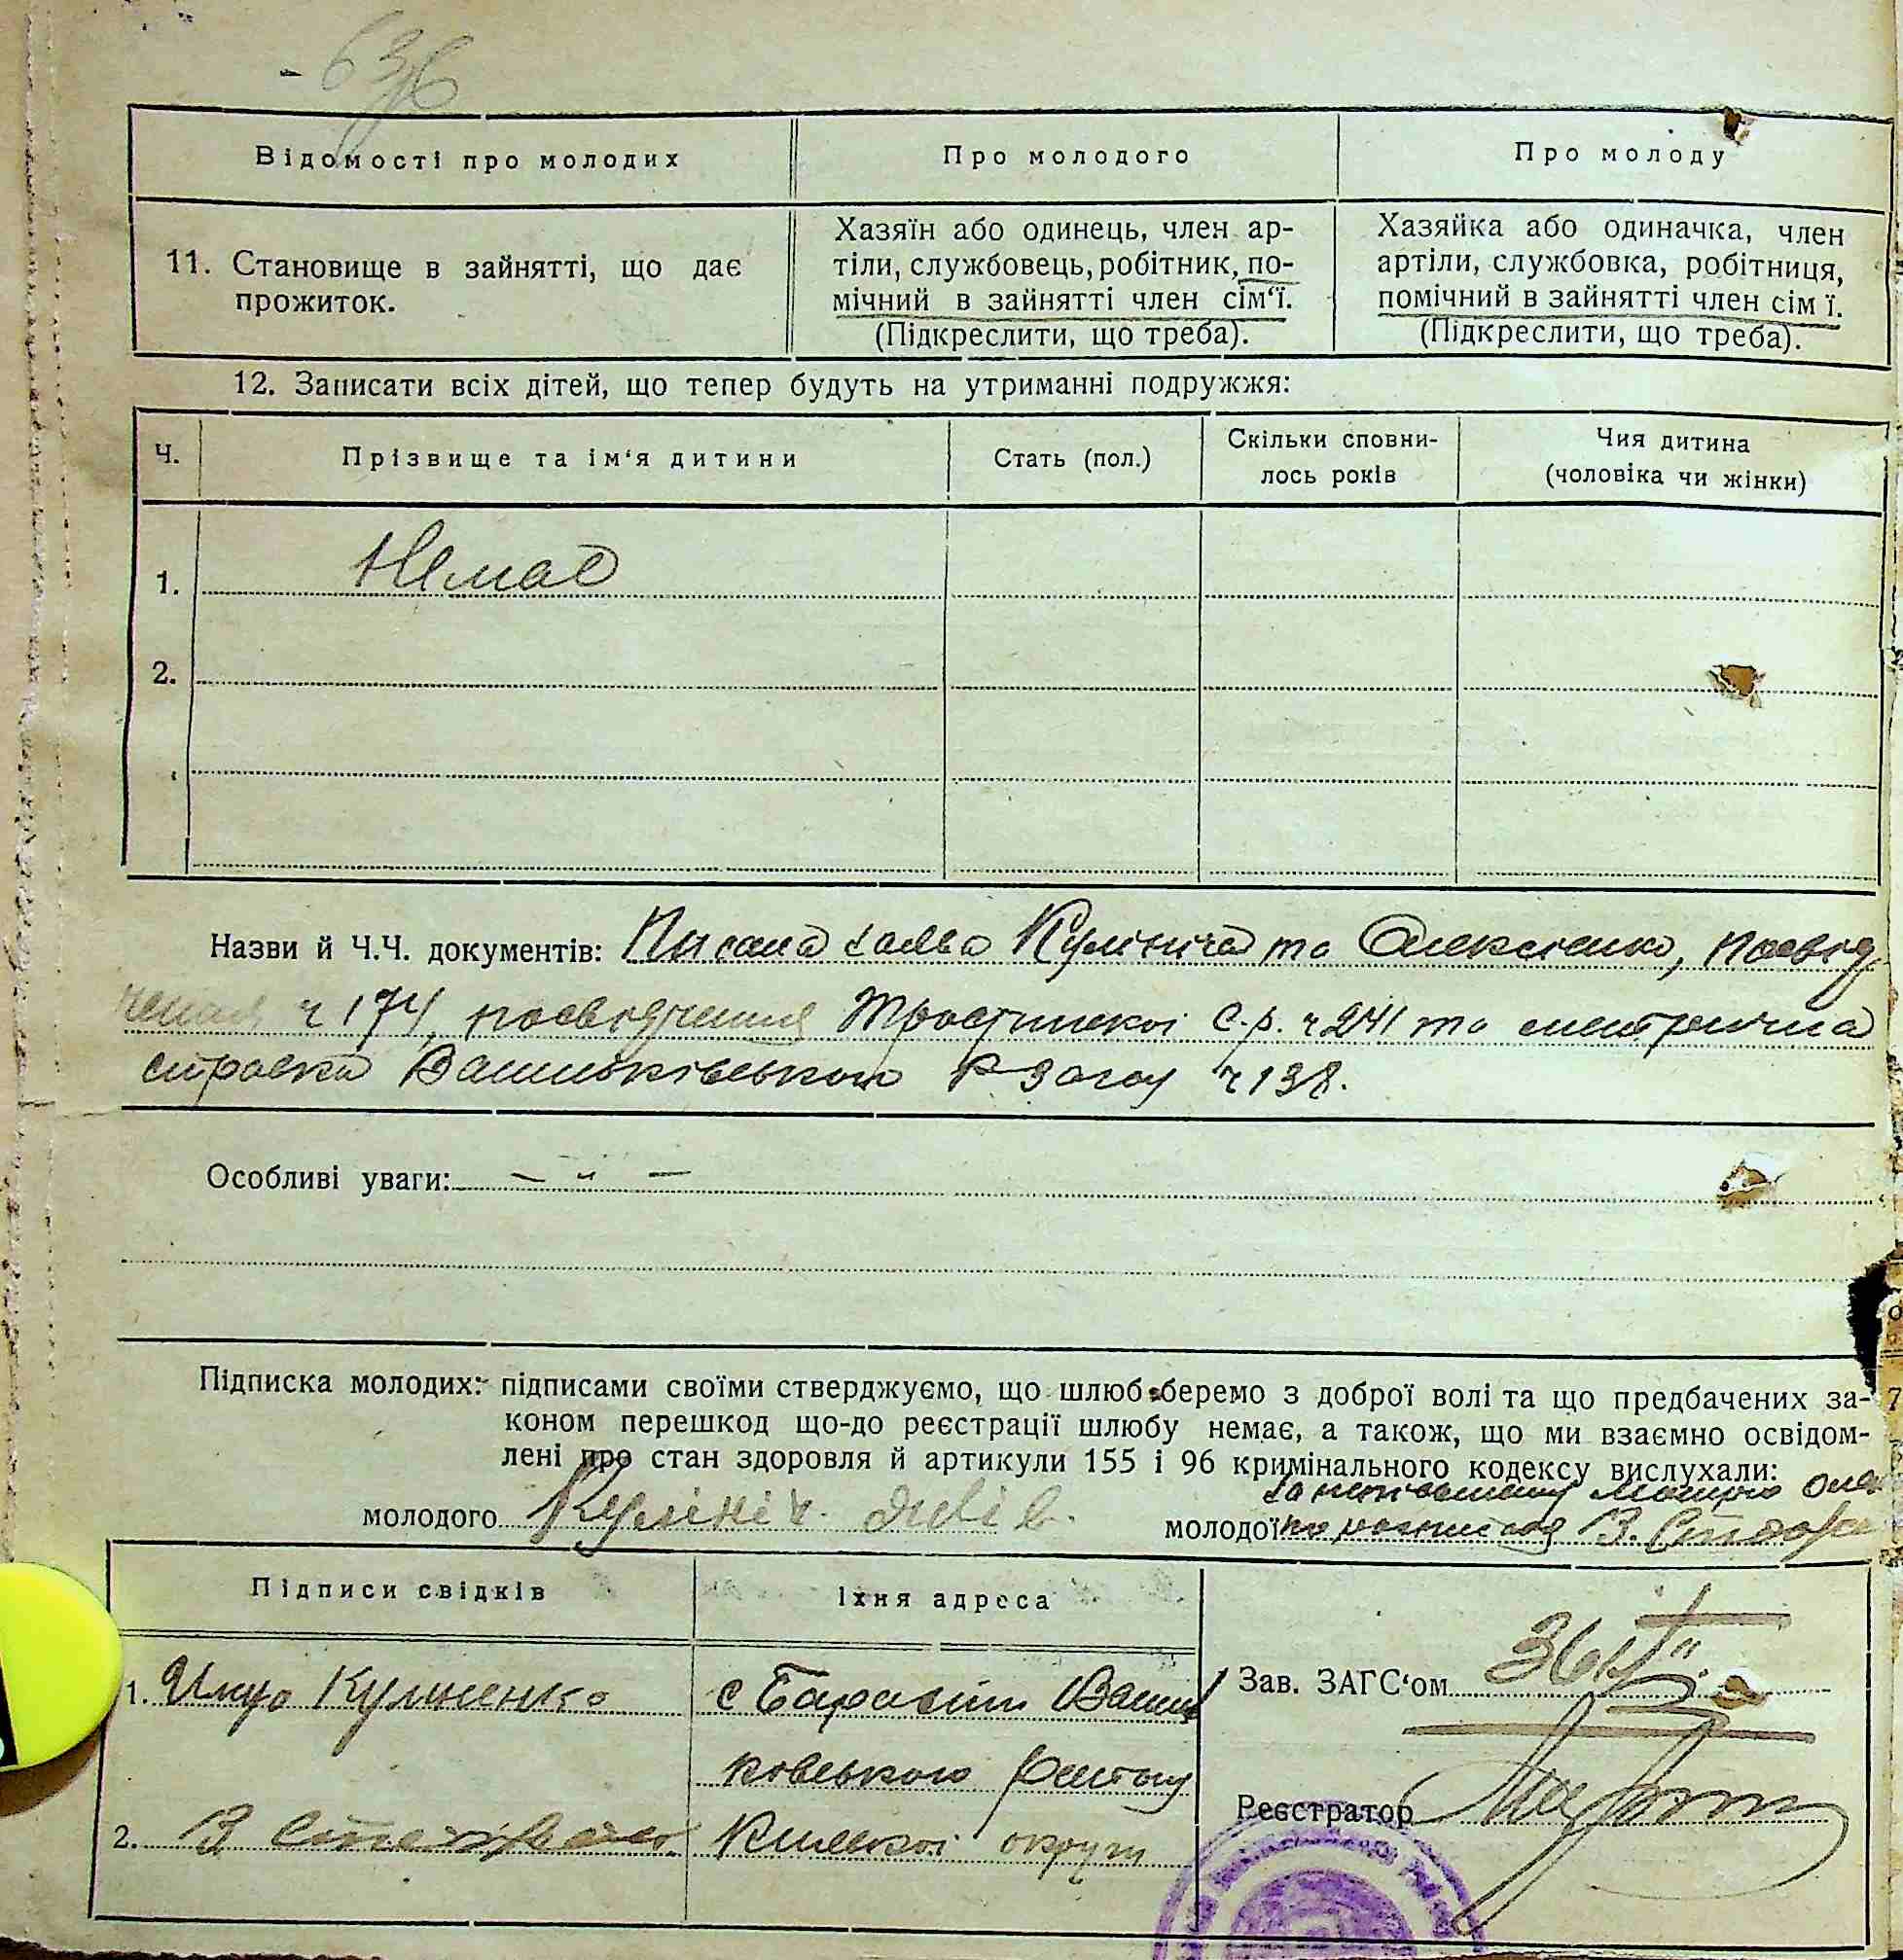 636
Відомості про молодих
Про молодого
Про молоду
11. Становище в зайнятті, що дає
прожиток.
Хазяїн або одинець, член ар-
тіли, службовець, робітник, по-
мічний в зайнятті член сім‘ї.
(Підкреслити, що треба).
Хазяйка або одиначка, член
артіли, службовка, робітниця,
помічний в зайнятті член сім ї.
(Підкреслити, що треба).
12. Записати всіх дітей, що тепер будуть на утриманні подружжя:
Ч.
Прізвище та ім‘я дитини
Стать (пол.)
Скільки сповни-
лось років
Чия дитина
(чоловіка чи жінки)
1. Немає
2.
Назви й Ч.Ч. документів: Писана заява Кулініча та Олексієнко, посвід
чення ч 174, посвідчення Тростинської с.р. ч 241 та метрична
справка Васильківського Р Загсу ч 138.
Особливі уваги: — " —
Підписка молодих: підписами своїми стверджуємо, що шлюб беремо з доброї волі та що предбачених за-
коном перешкод що-до реєстрації шлюбу немає, а також, що ми взаємно освідом-
лені про стан здоровля й артикули 155 і 96 кримінального кодексу вислухали:
за неписьменну
молодого Кулініч
молодої розписався В.
Підписи свідків
Їхня адреса
1. Кулиненко
с Барахти Василь
ковського району
2. В
Київської округи
Зав. ЗАГС‘ом
Реєстратор